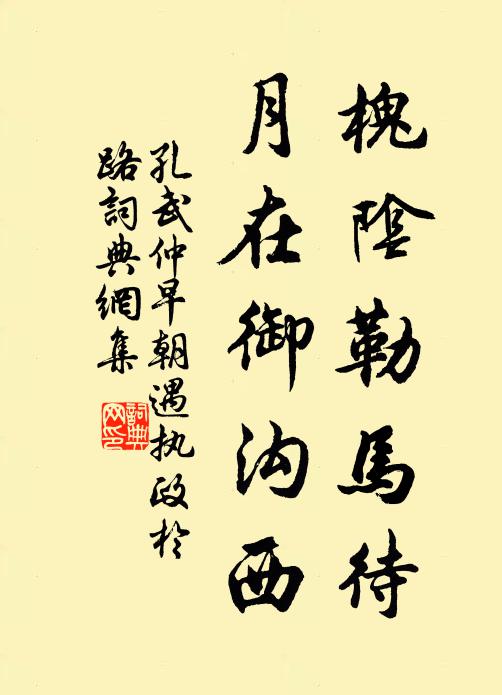 槐陰勒馬待
月在御沟西
孔武仲早朝遇执政於
路詞典網集
詞典
网印